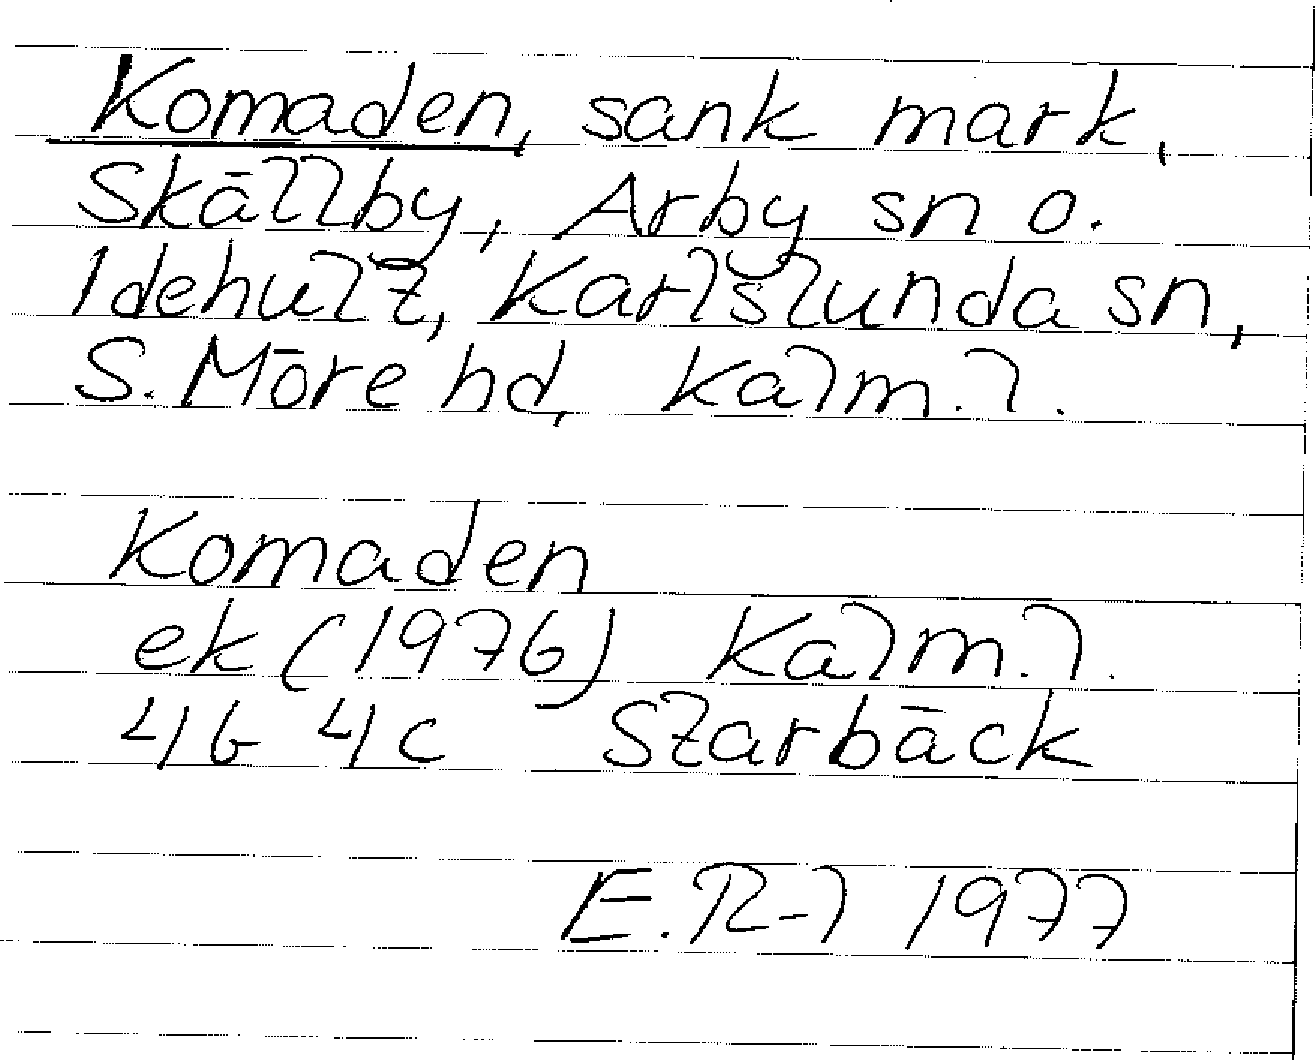 Komaden, sank mark,
Skällby, Arby sn o.
Idehult, Karlslunda sn,
S. Möre hd, Kalm. l.
Komaden
ek (1976) Kalm. l.
4G 4c Starbäck
E. R-l 1977